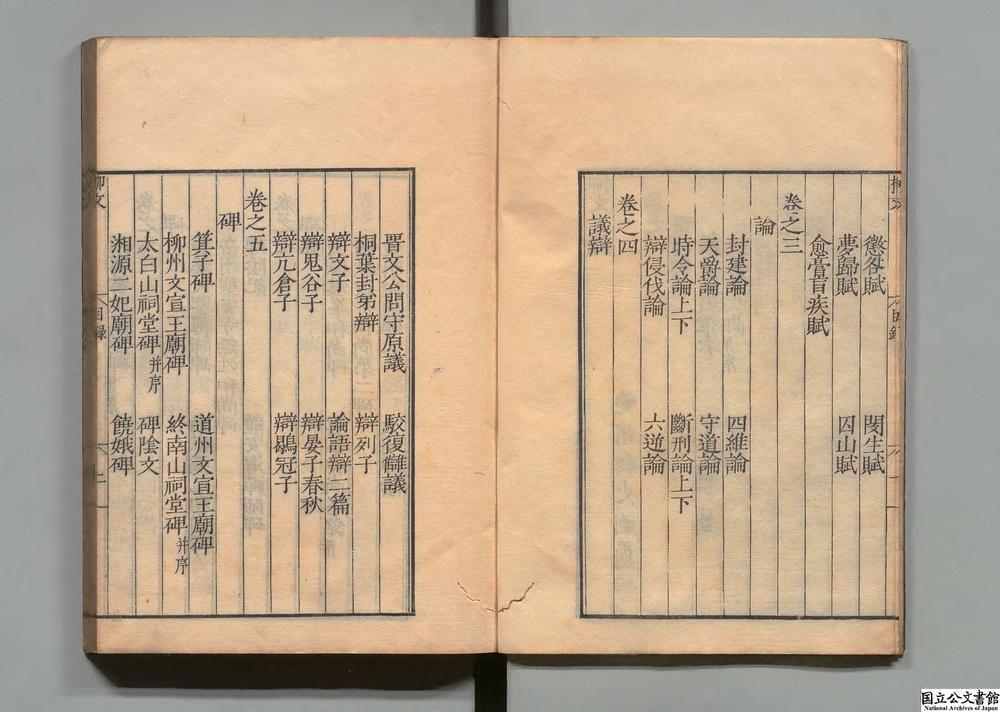 懲咎賦 閔生賦
夢歸賦 囚山賦
愈膏肓疾賦
卷之三
論
封建論 四維論
天爵論 守道論
時令論上下 斷刑論上下
辯侵伐論 六逆論
卷之四
議辯
晋文公問守原議 駮復讎議
桐葉封弟辯 辯列子
辯文子 論語辯二篇
辯鬼谷子 辯晏子春秋
辯亢倉子 辯鶡冠子
卷之五
碑
箕子碑 道州文宣王廟碑
柳州文宣王廟碑 終南山祠堂碑并序
太白山祠堂碑并序 碑陰文
湘源二妃廟碑 饒娥碑
柳文 目録
国立公文書館
National Archives of Japan